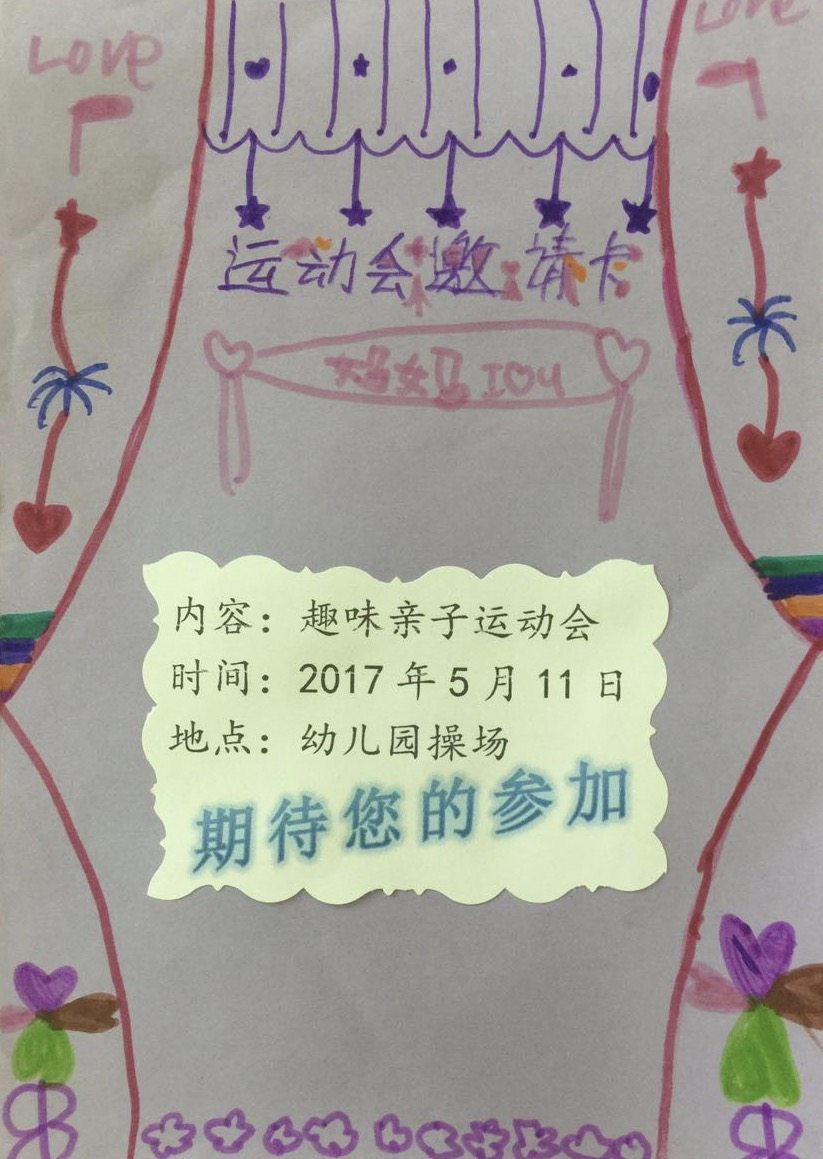 Love
Love
运动会邀请卡
妈妈 I U
内容：趣味亲子运动会
时间：2017年5月11日
地点：幼儿园操场
期待您的参加